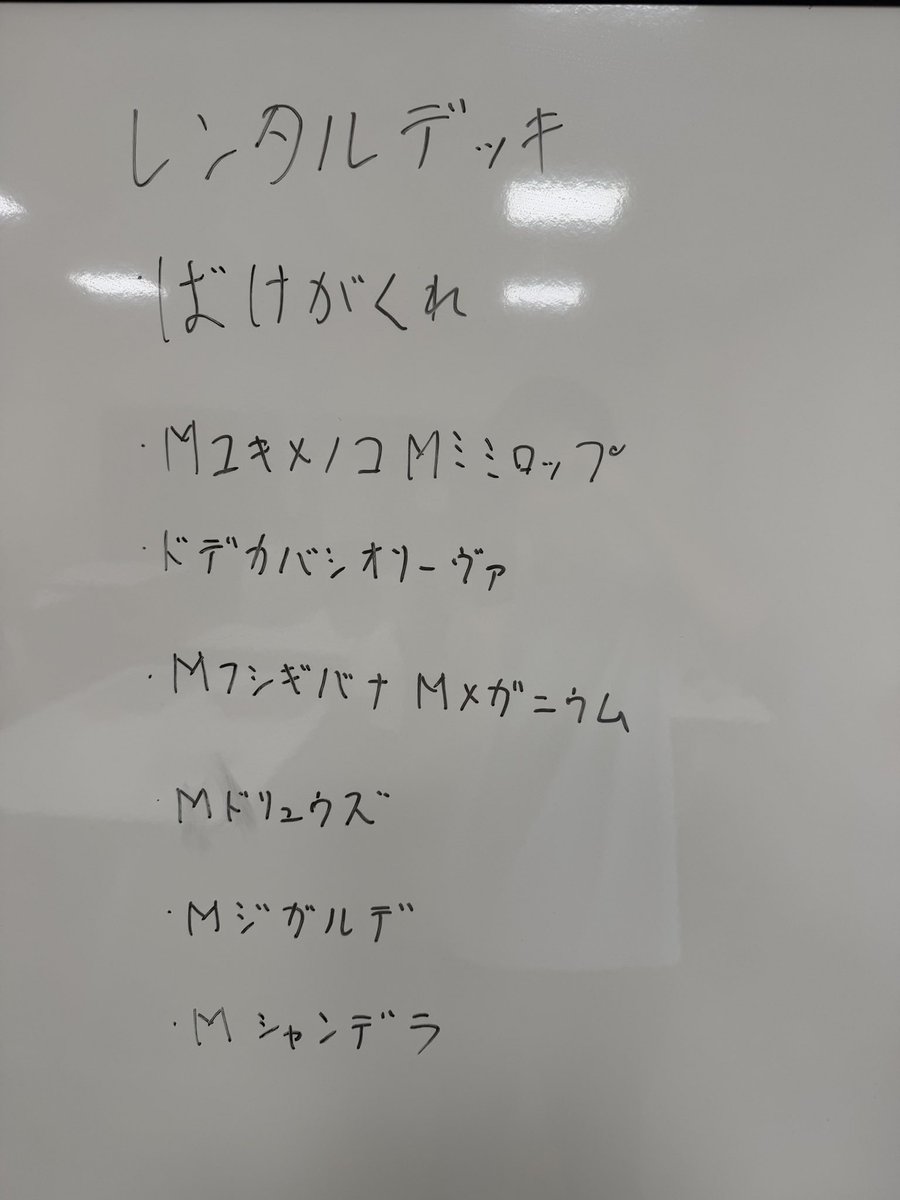 レンタルデッキ
・ばけがくれ
・MユキメノコMミミロップ
・ドデカバシオリーヴァ
・Mフシギバナ Mメガニウム
・Mドリュウズ
・Mジガルデ
・Mシャンデラ